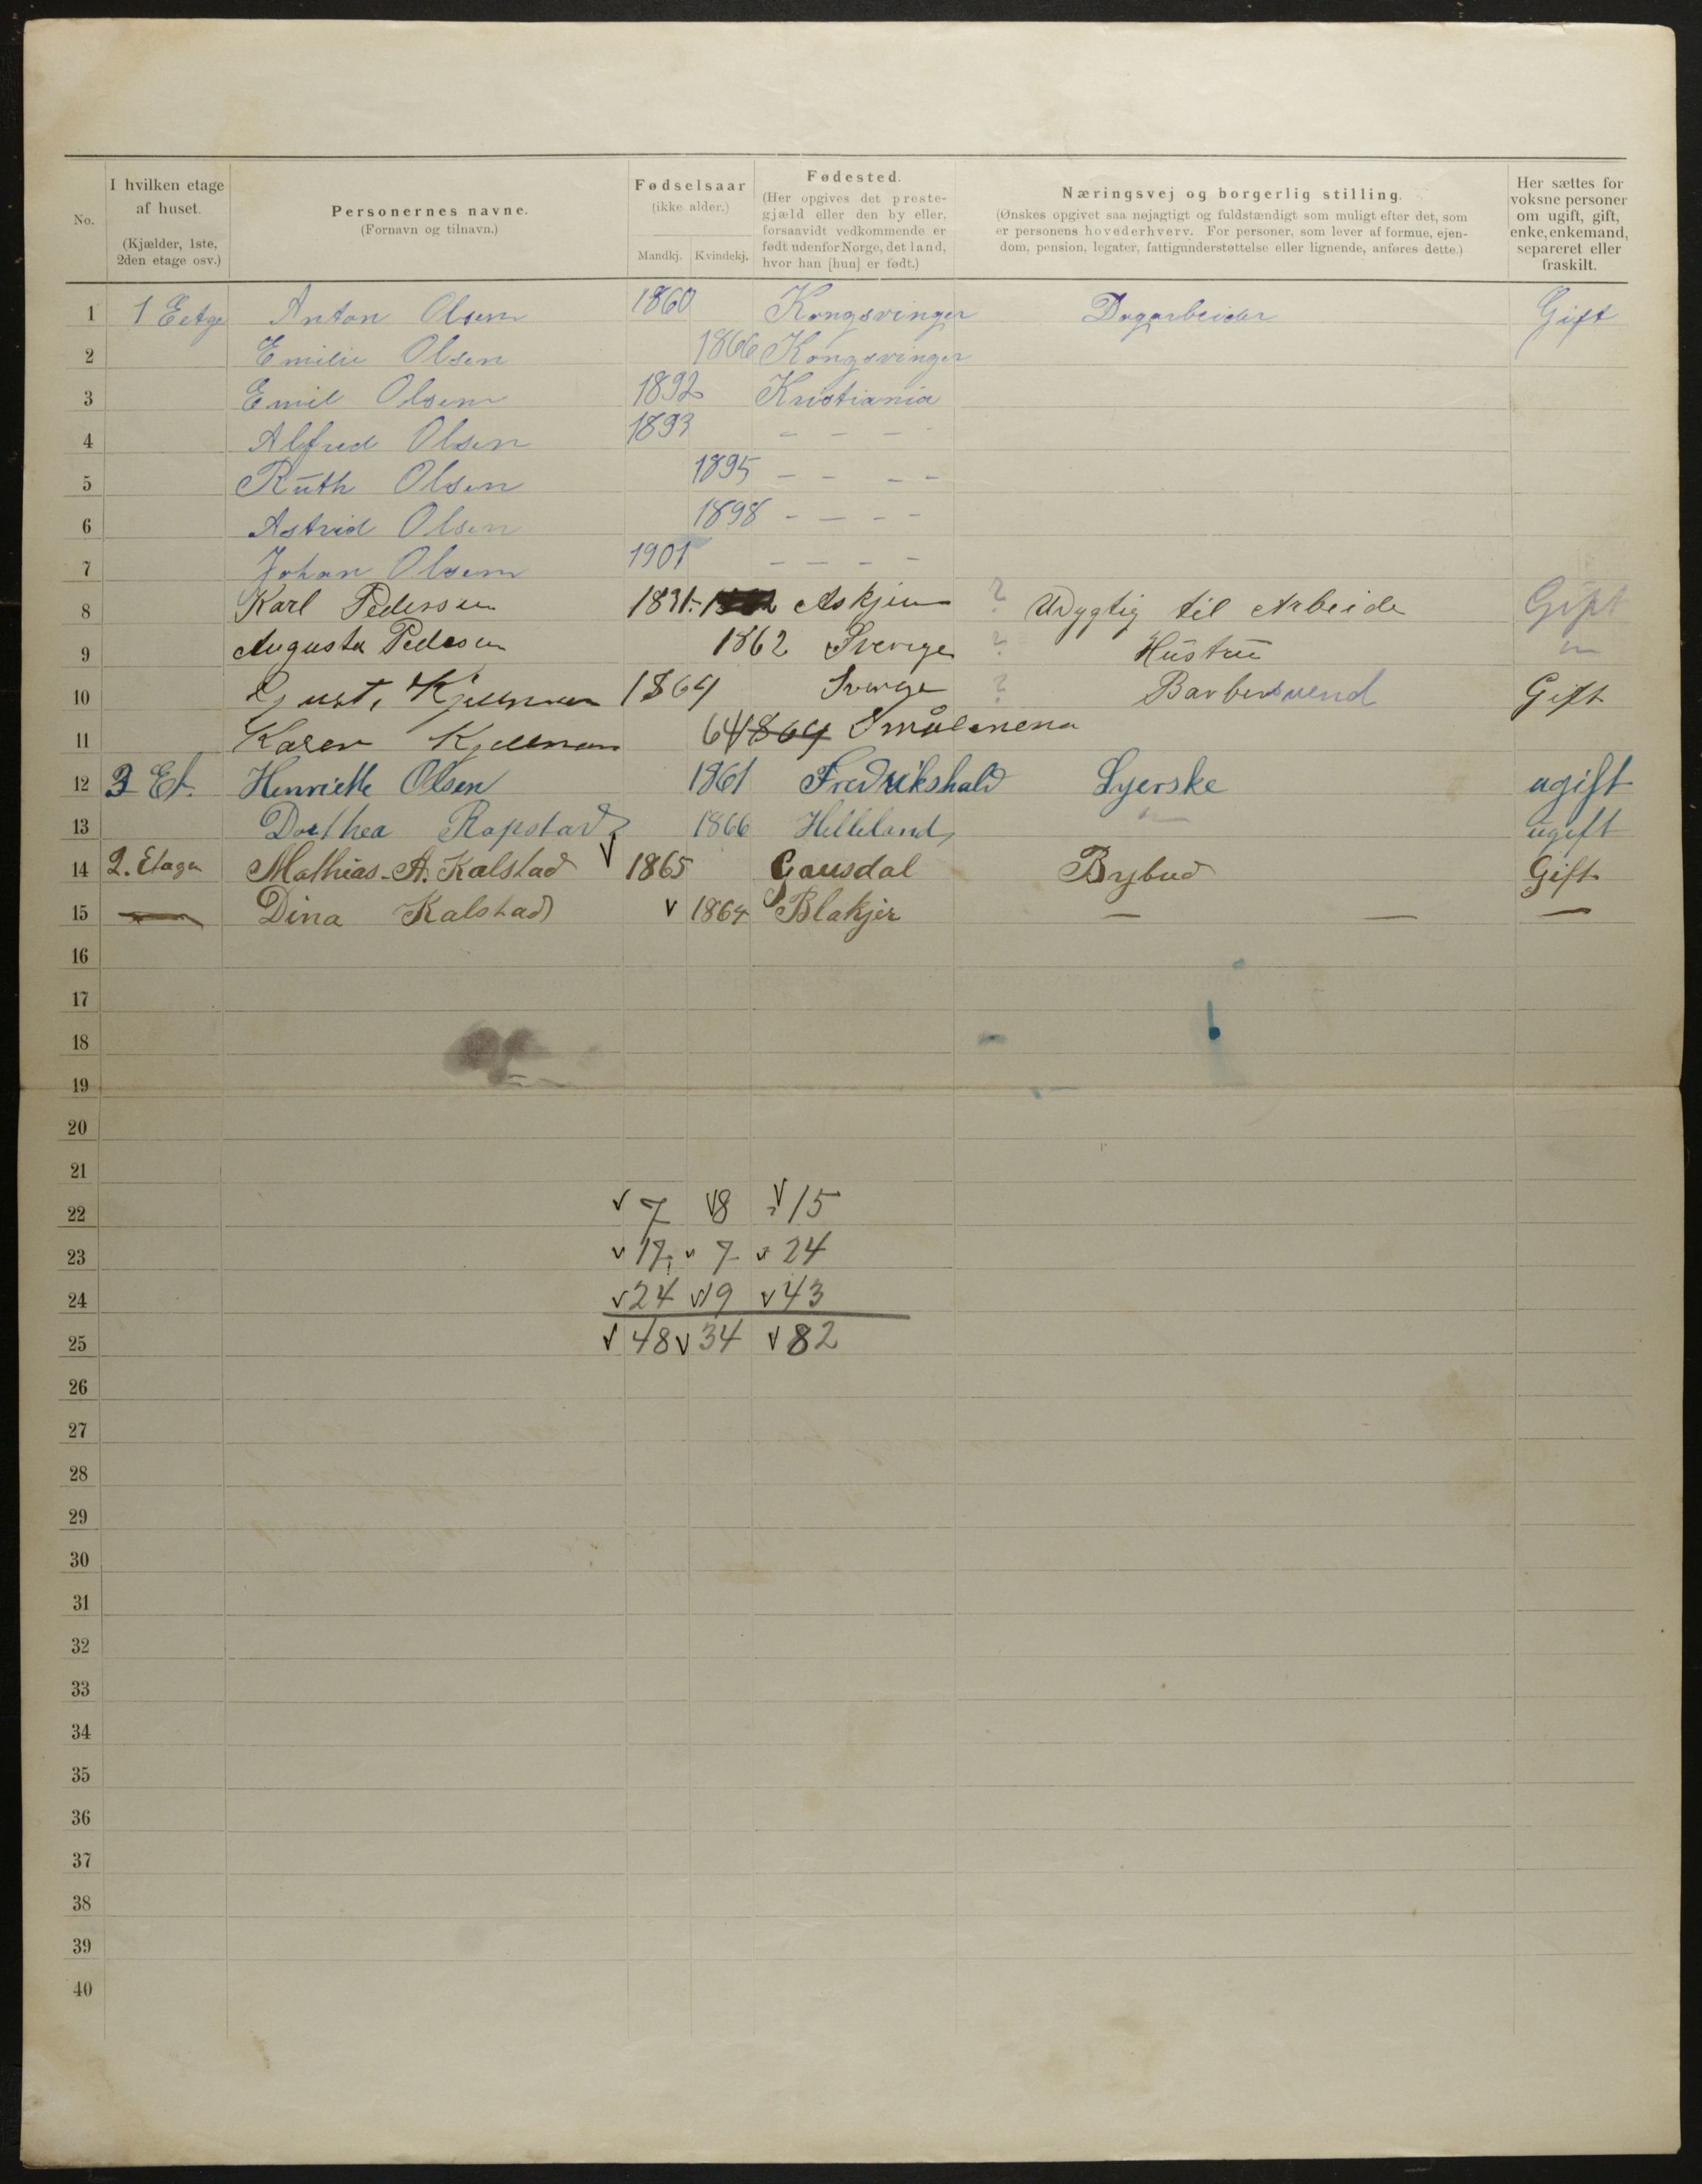 No.
I hvilken etage af huset.
(Kjælder, 1ste, 2den etage osv.)
Personernes navne.
(Fornavn og tilnavn.)
Fødselsaar
(ikke alder.)
Mandkj. Kvindekj.
Fødested.
(Her opgives det preste-
gjæld eller den by eller,
forsaavidt vedkommende er
født udenfor Norge, det land,
hvor han [hun] er født.)
Næringsvej og borgerlig stilling.
(Ønskes opgivet saa nøjagtigt og fuldstændigt som muligt efter det, som
er personens hovederhverv. For personer, som lever af formue, ejen-
dom, pension, legater, fattigunderstøttelse eller lignende, anføres dette.)
Her sættes for
voksne personer
om ugift, gift,
enke, enkemand,
separeret eller
fraskilt.
1 1 Eetge Anton Olsen 1860 Kongsvinger Dagarbeider Gift
2 Emilie Olsen 1866 Kongsvinger
3 Emil Olsen 1892 Kristiania
4 Alfred Olsen 1893 - - - -
5 Ruth Olsen 1895 - - - -
6 Astrid Olsen 1898 - - - -
7 Johan Olsen 1901 - - - -
8 Karl Pedersen 1831 Askjem ? Udygtig til Arbeide Gift
9 Augusta Pedesen 1862 Sverige ? Hustru "
10 Kjellman 1864 Sverige ? Barbersvend Gift
11 Karen Kjellman 64 1864 Smålenena
12 3 Et. Henriette Olsen 1861 Fredrikshald Syerske ugift
13 Dorthea Rapstad 1866 Helleland " ugift
14 2. Etage Mathias A. Kalstad √ 1865 Gausdal Bybud Gift
15 Dina Kalstad v 1864 Blakjer — — —
16
17
18
19
20
21
22 √ 7 √ 8 √ 15
23 v 17 v 7 v 24
24 v 24 v 19 v 43
25 √ 48 v 34 √ 82
26
27
28
29
30
31
32
33
34
35
36
37
38
39
40